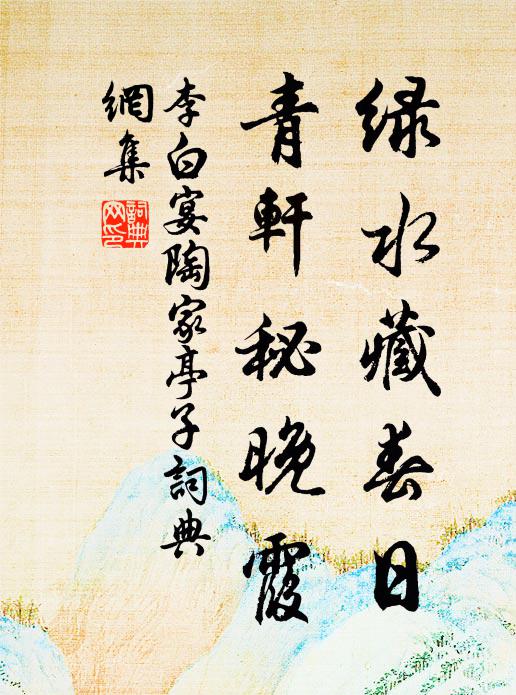 绿水藏春日
青軒秘晚霞
李白宴陶家亭子詞典
網集
詞典
网印